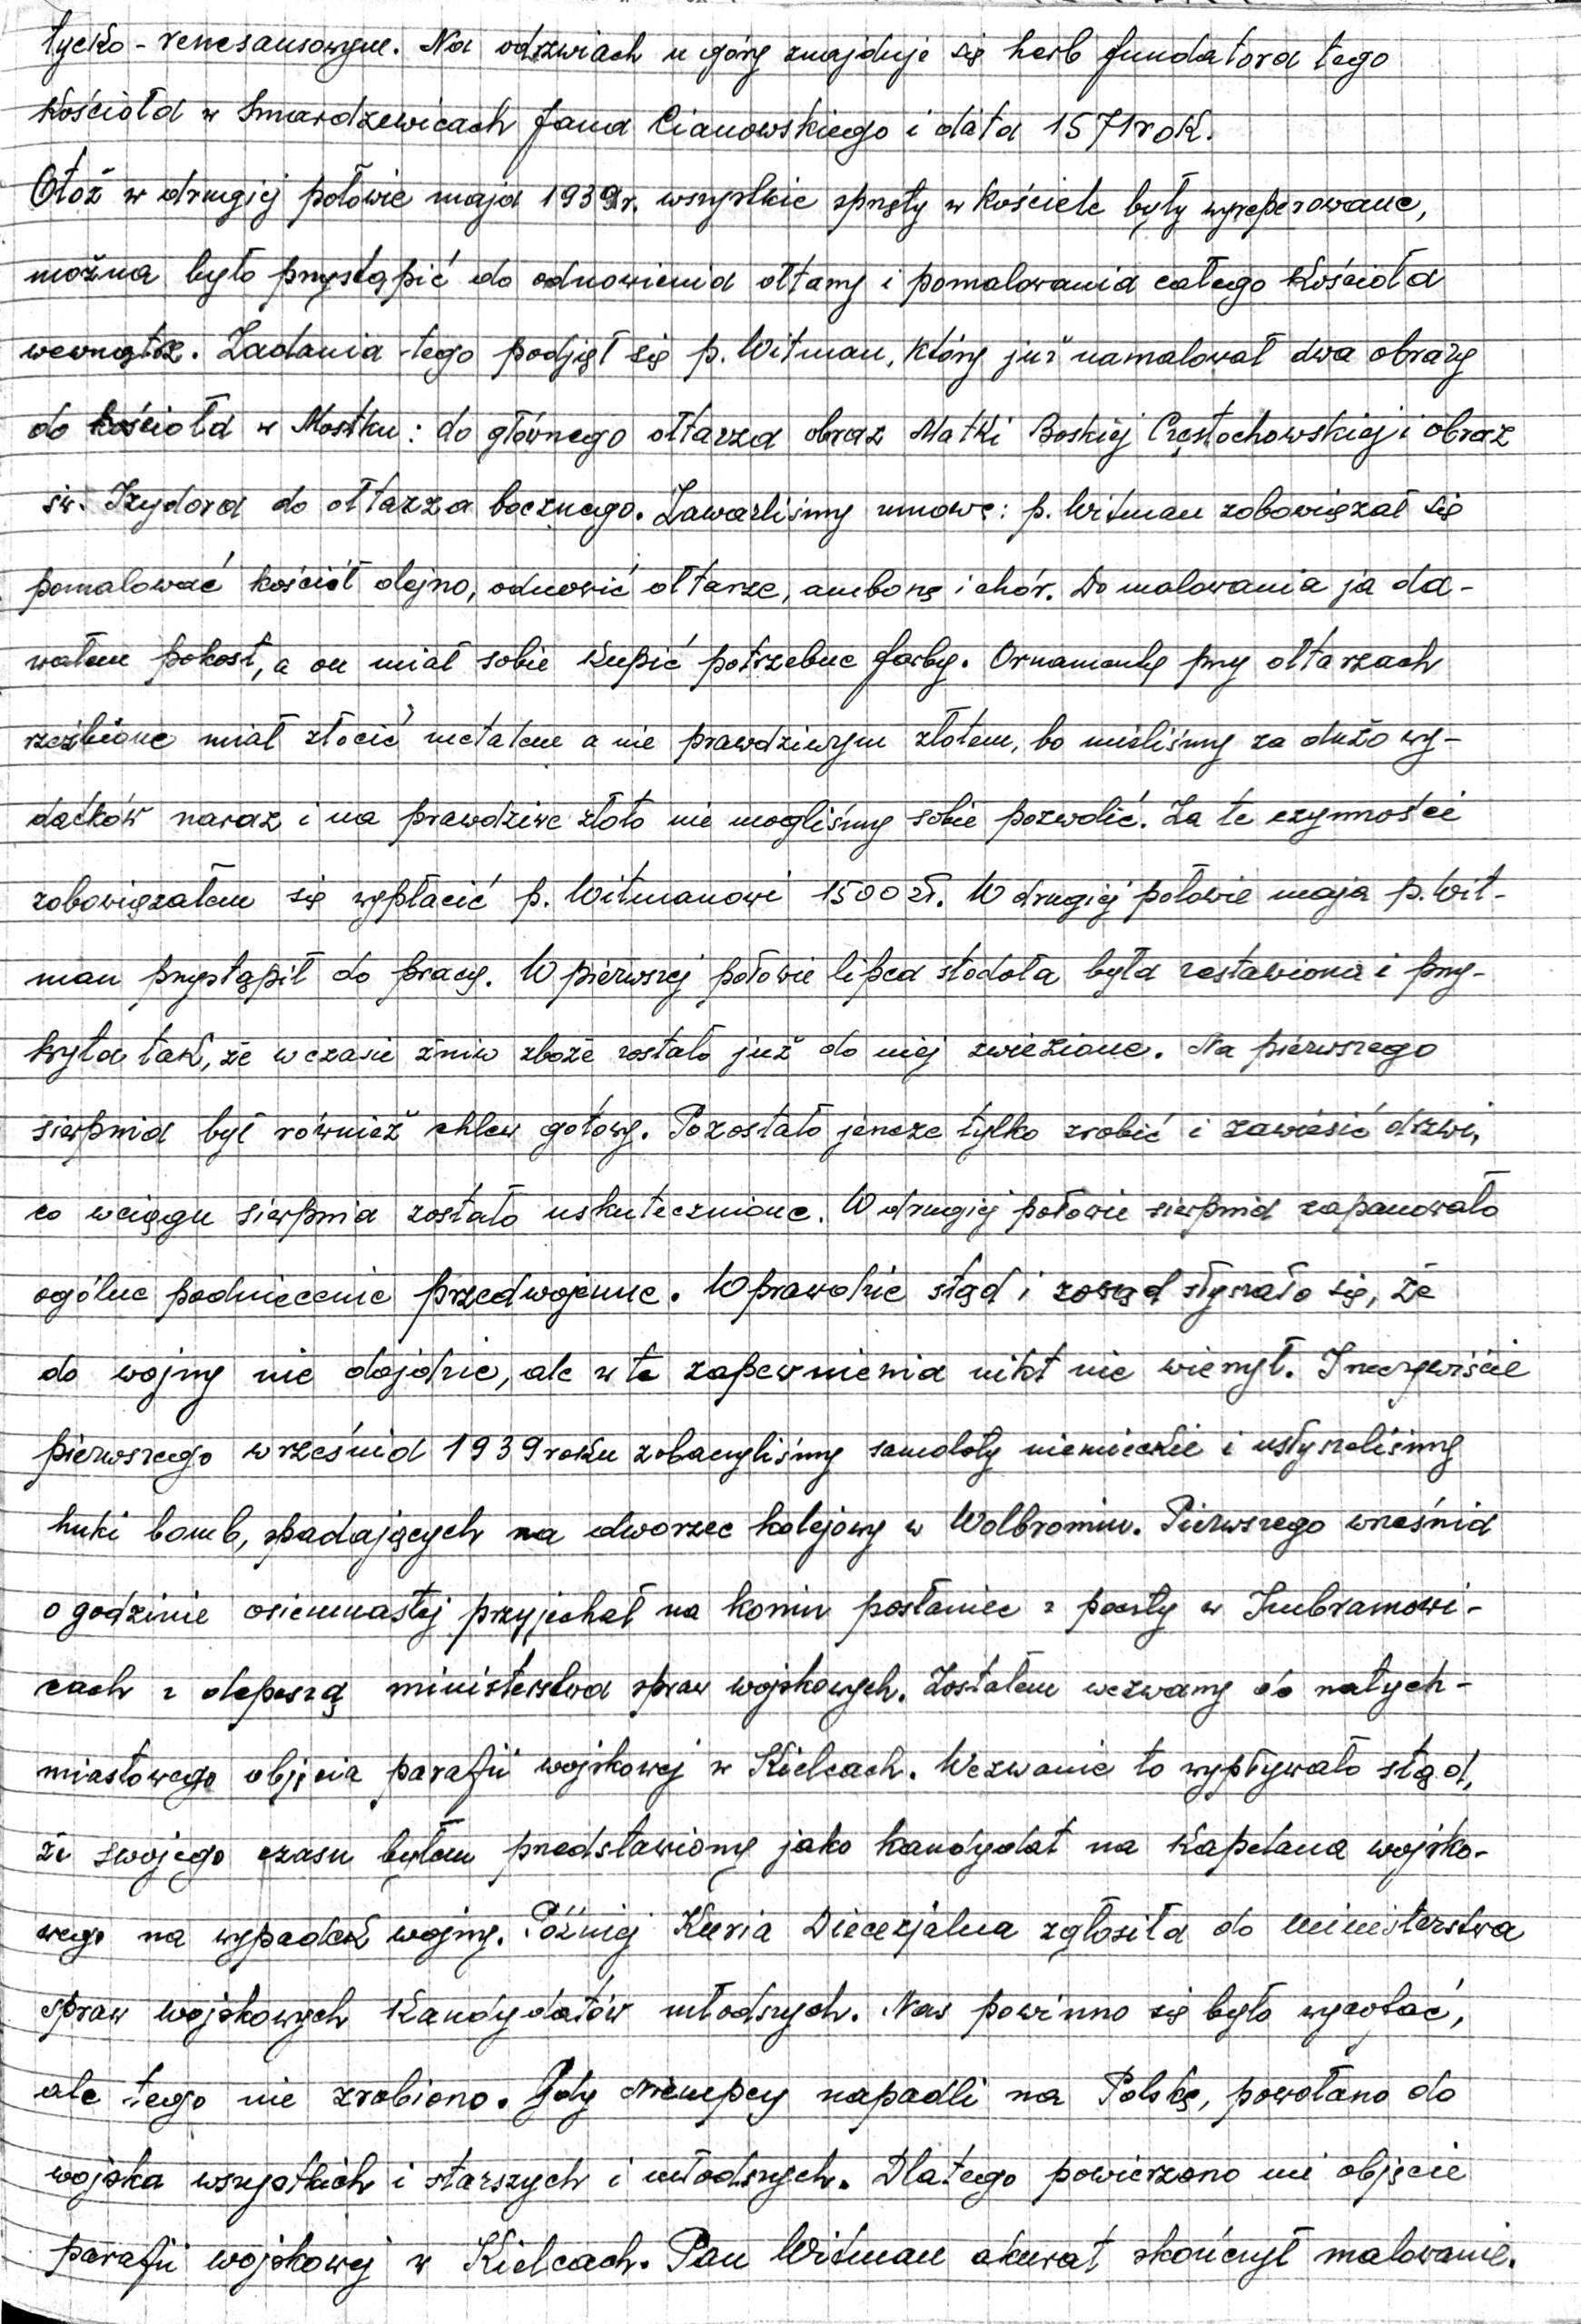 tycko-renesansowym. Na odrzwiach u góry znajduje się herb fundatora tego
Kościoła w Smardzewicach Jana Cianowskiego i data 1571 rok.
Otóż w drugiej połowie maja 1939 r. wszystkie sprzęty w Kościele były wyreperowane,
można było przystąpić do odnowienia ołtarzy i pomalowania całego Kościoła
wewnątrz. Zadania tego podjął się p. Witman, który już namalował dwa obrazy
do kościoła w Mostku: do głównego ołtarza obraz Matki Boskiej Częstochowskiej i obraz
św. Izydora do ołtarza bocznego. Zawarliśmy umowę: p. Witman zobowiązał się
pomalować kościół olejno, odnowić ołtarze, ambonę i chór. Do malowania ja da-
wałem pokost, a on miał sobie kupić potrzebne farby. Ornamenty przy ołtarzach
rzeźbione miał złocić metalem a nie prawdziwym złotem, bo mieliśmy za dużo wy-
datków naraz i na prawdziwe złoto nie mogliśmy sobie pozwolić. Za te czynności
zobowiązałem się wypłacić p. Witmanowi 1500 zł. W drugiej połowie maja p. Wit-
man przystąpił do pracy. W pierwszej połowie lipca stodoła była zestawiona i przy-
kryta tak, że w czasie żniw zboże zostało już do niej zwiezione. Na pierwszego
sierpnia był również chlew gotowy. Pozostało jeszcze tylko zrobić i zawiesić drzwi,
co wciągu sierpnia zostało uskutecznione. W drugiej połowie sierpnia zapanowało
ogólne podniecenie przedwojenne. Wprawdzie stąd i zowąd słyszało się, że
do wojny nie dojdzie, ale w te zapewnienia nikt nie wierzył. I rzeczywiście
pierwszego września 1939 roku zobaczyliśmy samoloty niemieckie i usłyszeliśmy
huki bomb, spadających na dworzec kolejowy w Wolbromiu. Pierwszego września
o godzinie osiemnastej przyjechał na koniu posłaniec z poczty w Imbramowi-
cach z depeszą ministerstwa spraw wojskowych. Zostałem wezwany do natych-
miastowego objęcia parafii wojskowej w Kielcach. Wezwanie to wypływało stąd,
że swojego czasu byłem przedstawiony jako kandydat na Kapelana wojsko-
wego na wypadek wojny. Później Kuria Diecezjalna zgłosiła do ministerstwa
spraw wojskowych Kandydatów młodszych. Nas powinno się było wycofać,
ale tego nie zrobiono. Gdy Niempcy napadli na Polskę, powołano do
wojska wszystkich i starszych i młodszych. Dlatego powierzono mi objęcie
parafii wojskowej w Kielcach. Pan Witman akurat skończył malowanie.